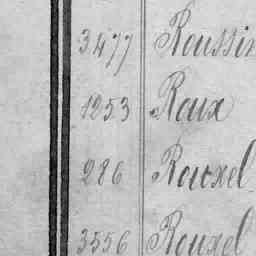 3477 Roussin
1253 Roux
286 Rouxel
3556 Rouxel